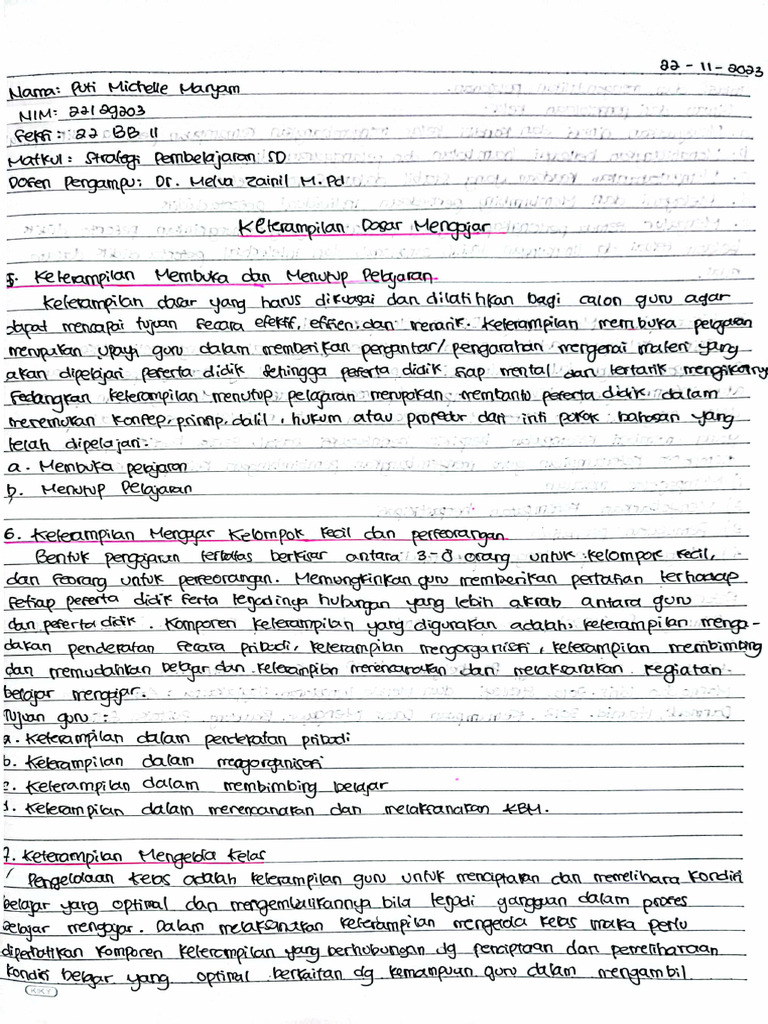 22 - 11 - 2023
Nama: Puti Michelle Maryam
NIM: 22129203
Seksi: 22 BB 11
Matkul: Strategi Pembelajaran SD
Dosen Pengampu: Dr. Melva Zainil M.Pd
Keterampilan Dasar Mengajar
5. Keterampilan Membuka dan Menutup Pelajaran
Keterampilan dasar yang harus dikuasai dan dilatihkan bagi calon guru agar
dapat mencapai tujuan secara efektif, efisien, dan menarik. Keterampilan membuka pelajaran
merupakan upaya guru dalam memberikan pengantar/pengarahan mengenai materi yang
akan dipelajari peserta didik sehingga peserta didik siap mental dan tertarik mengikutinya
Sedangkan keterampilan menutup pelajaran merupakan membantu peserta didik dalam
menemukan konsep, prinsip, dalil, hukum atau prosedur dari inti pokok bahasan yang
telah dipelajari.
a. Membuka pelajaran
b. Menutup Pelajaran
6. Keterampilan Mengajar Kelompok Kecil dan perseorangan
Bentuk pengajaran terbatas berkisar antara 3-8 orang untuk kelompok kecil,
dan seorang untuk perseorangan. Memungkinkan guru memberikan perhatian terhadap
setiap peserta didik serta terjadinya hubungan yang lebih akrab antara guru
dan peserta didik. Komponen keterampilan yang digunakan adalah: keterampilan menga-
dakan pendekatan secara pribadi, keterampilan mengorganisasi, keterampilan membimbing
dan memudahkan belajar dan keterampilan merencanakan dan melaksanakan kegiatan
belajar mengajar.
Tujuan guru:
a. Keterampilan dalam pendekatan pribadi
b. Keterampilan dalam mengorganisasi
c. Keterampilan dalam membimbing belajar
d. Keterampilan dalam merencanakan dan melaksanakan KBM.
7. Keterampilan Mengelola Kelas
Pengelolaan kelas adalah keterampilan guru untuk menciptakan dan memelihara kondisi
belajar yang optimal dan mengembalikannya bila terjadi gangguan dalam proses
belajar mengajar. Dalam melaksanakan keterampilan mengelola kelas maka perlu
diperhatikan komponen keterampilan yang berhubungan dg penciptaan dan pemeliharaan
kondisi belajar yang optimal berkaitan dg kemampuan guru dalam mengambil
KKY